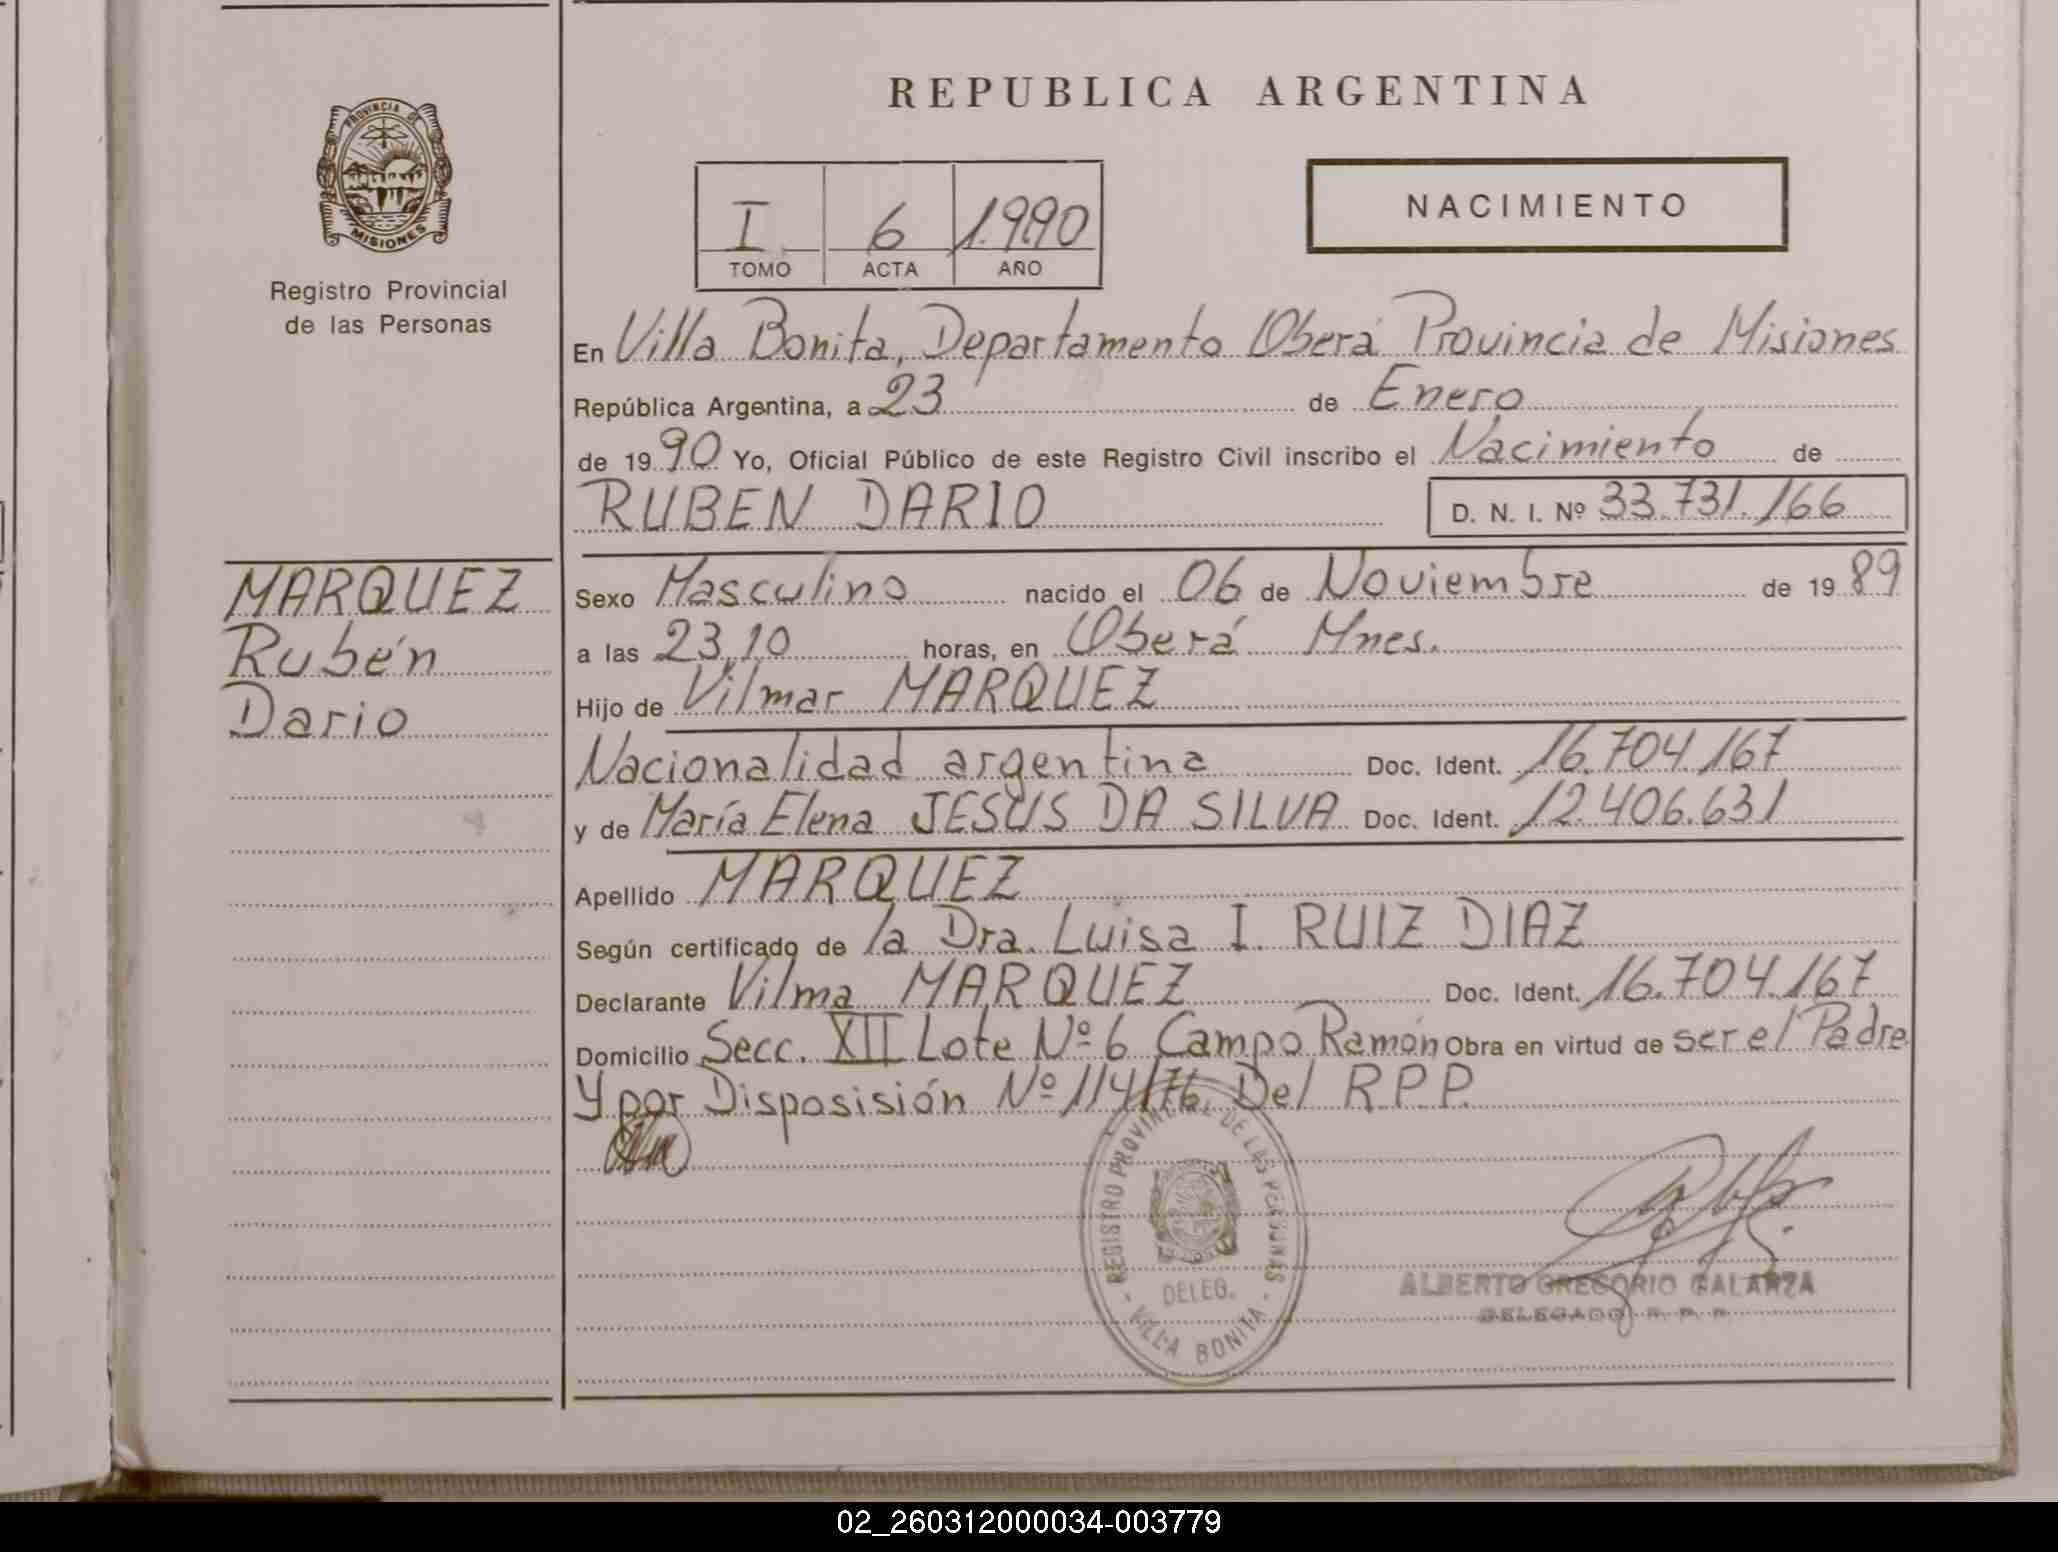 PROVINCIA DE
MISIONES
Registro Provincial
de las Personas
MARQUEZ
Rubén
Dario
REPUBLICA ARGENTINA
I 6 1.990
TOMO ACTA AÑO
NACIMIENTO
En Villa Bonita, Departamento Oberá Provincia de Misiones
República Argentina, a 23 de Enero
de 1990 Yo, Oficial Público de este Registro Civil inscribo el Nacimiento de
RUBEN DARIO D. N. I. Nº 33.731.166
Sexo Masculino nacido el 06 de Noviembre de 1989
a las 23,10 horas, en Oberá Mnes.
Hijo de Vilmar MARQUEZ
Nacionalidad argentina Doc. Ident. 16.704.167
y de María Elena JESUS DA SILVA Doc. Ident. 12.406.631
Apellido MARQUEZ
Según certificado de la Dra. Luisa I. RUIZ DIAZ
Declarante Vilma MARQUEZ Doc. Ident. 16.704.167
Domicilio Secc. XII Lote Nº 6 Campo Ramón Obra en virtud de ser el Padre
Y por Disposisión Nº 114/76. Del R.P.P.
REGISTRO PROVINCIAL DE LAS PERSONAS
DELEG.
VILLA BONITA
ALBERTO GREGORIO GALARZA
DELEGADO R. P. P.
02_260312000034-003779